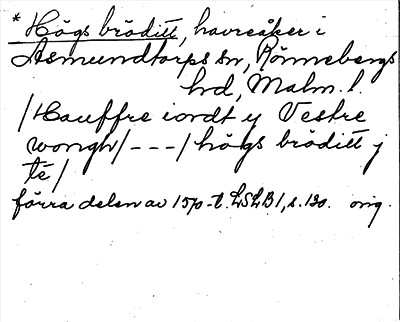 * Högs bröditt, havreåker i
Asmundtorps sn, Rönnebergs
hd, Malm. l.
/Hauffre iordt y Vestre
wongh/---/högs bröditt j
té/
förra delen av 1570-t. LSLB 1, s. 120. orig.